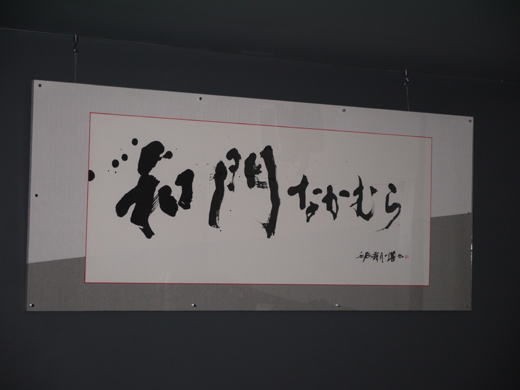 和門なかむら